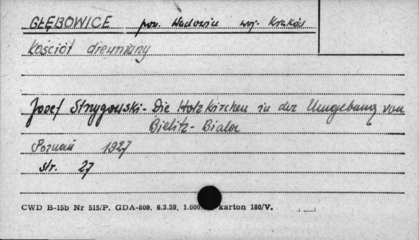 GŁĘBOWICE pow. Wadowice woj. Kraków
Kościół drewniany
Josef Strzygowski - Die Holzkirchen in der Umgebung von
Bielitz-Biala
Poznań 1927
str. 27
CWD B-15b Nr 515/P. GDA-809. 6.3.59. 1.000 karton 180/V.